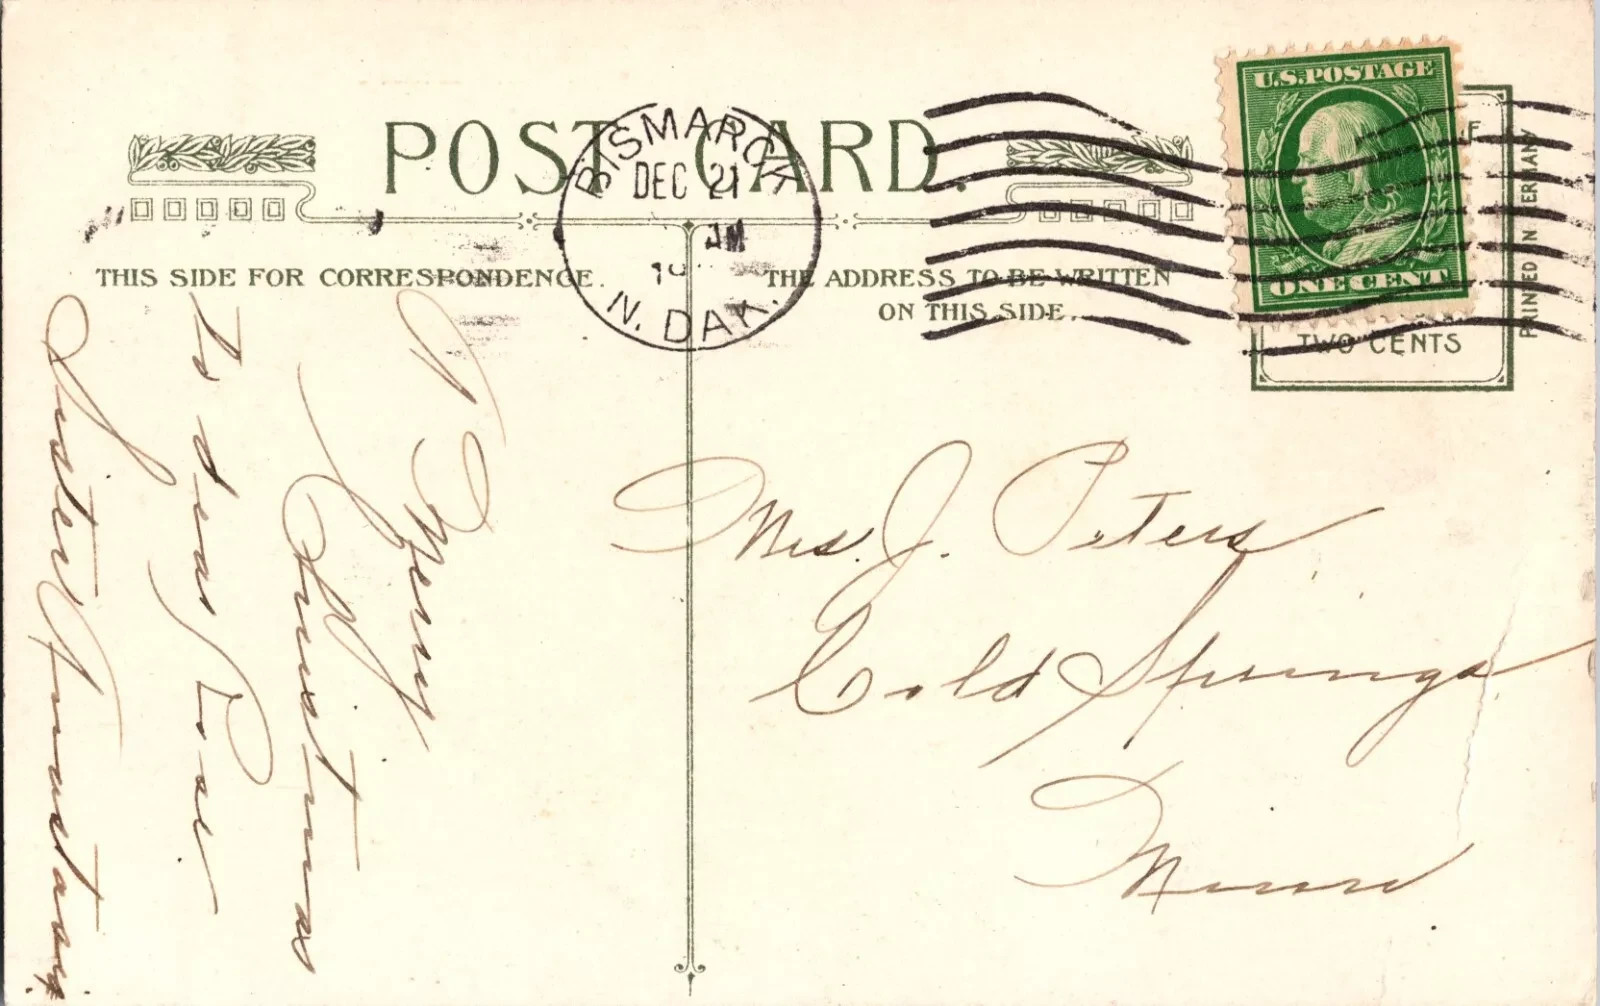 POST CARD.
BISMARCK
DEC 21
AM
19
N. DAK.
U.S. POSTAGE
ONE CENT
F
TWO CENTS
PRINTED IN GERMANY
THIS SIDE FOR CORRESPONDENCE.
THE ADDRESS TO BE WRITTEN
ON THIS SIDE.
A Merry
Christmas
To dear Rose
Sister Anastasia.
Mrs. J. Peters
Cold Springs
Minn